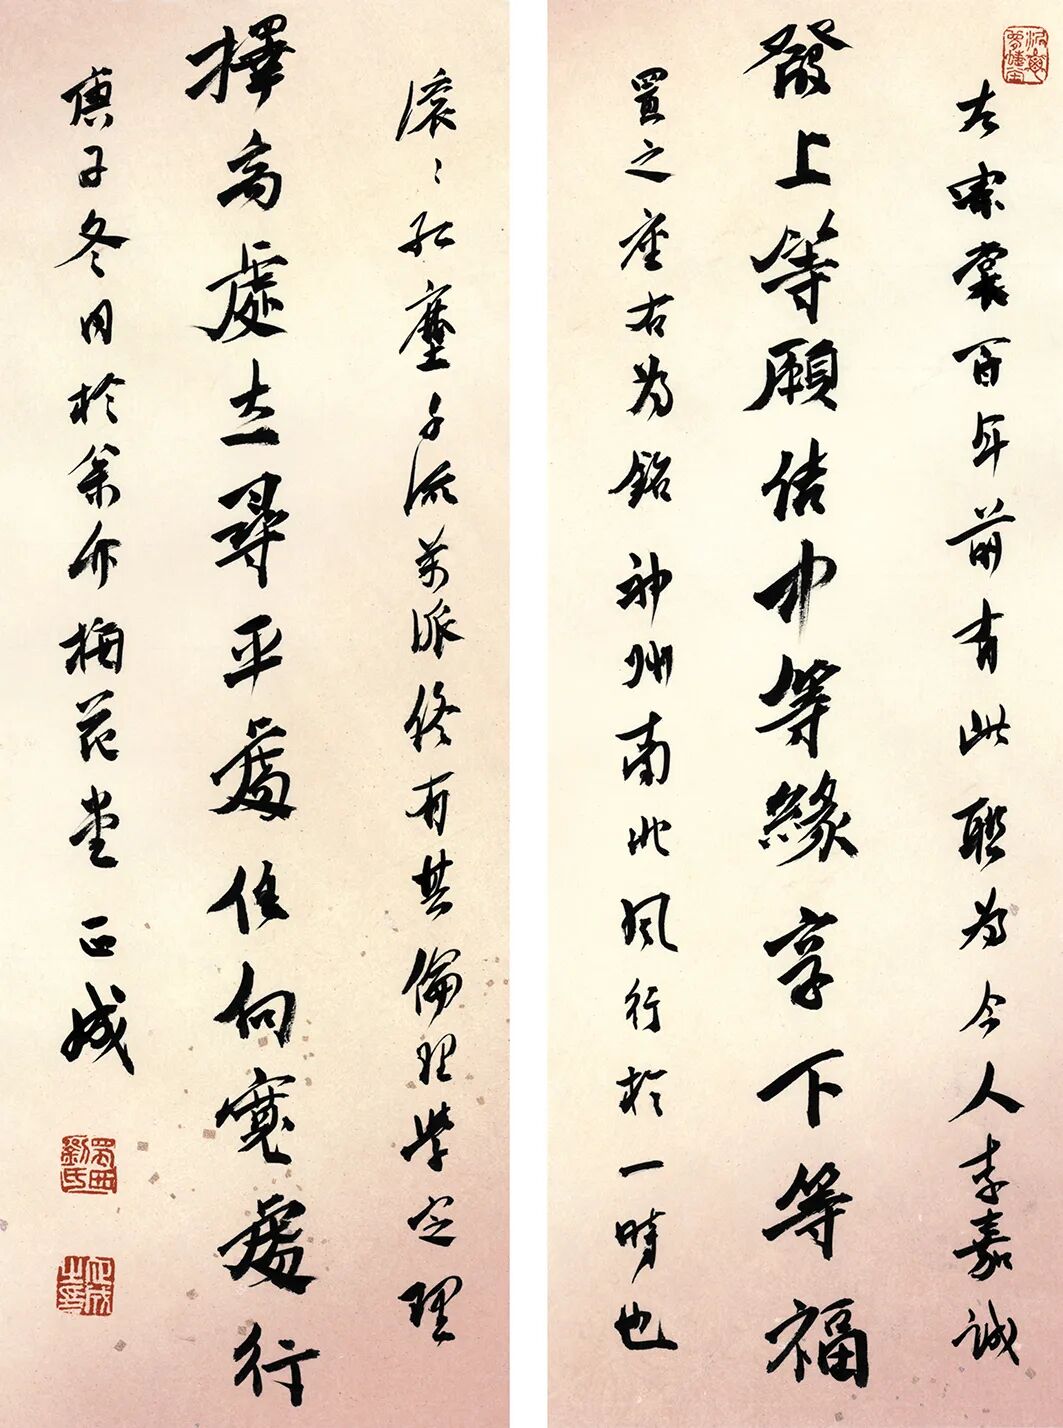 左宗棠百年前有此聯為今人李嘉誠
發上等願結中等緣享下等福
置之座右為銘神州南北風行於一時也
滾〻紅塵千流萬派終有其倫理學定理
擇高處立尋平處住向寬處行
庚子冬月於梅花堂正成
蜀西劉氏
正成之印